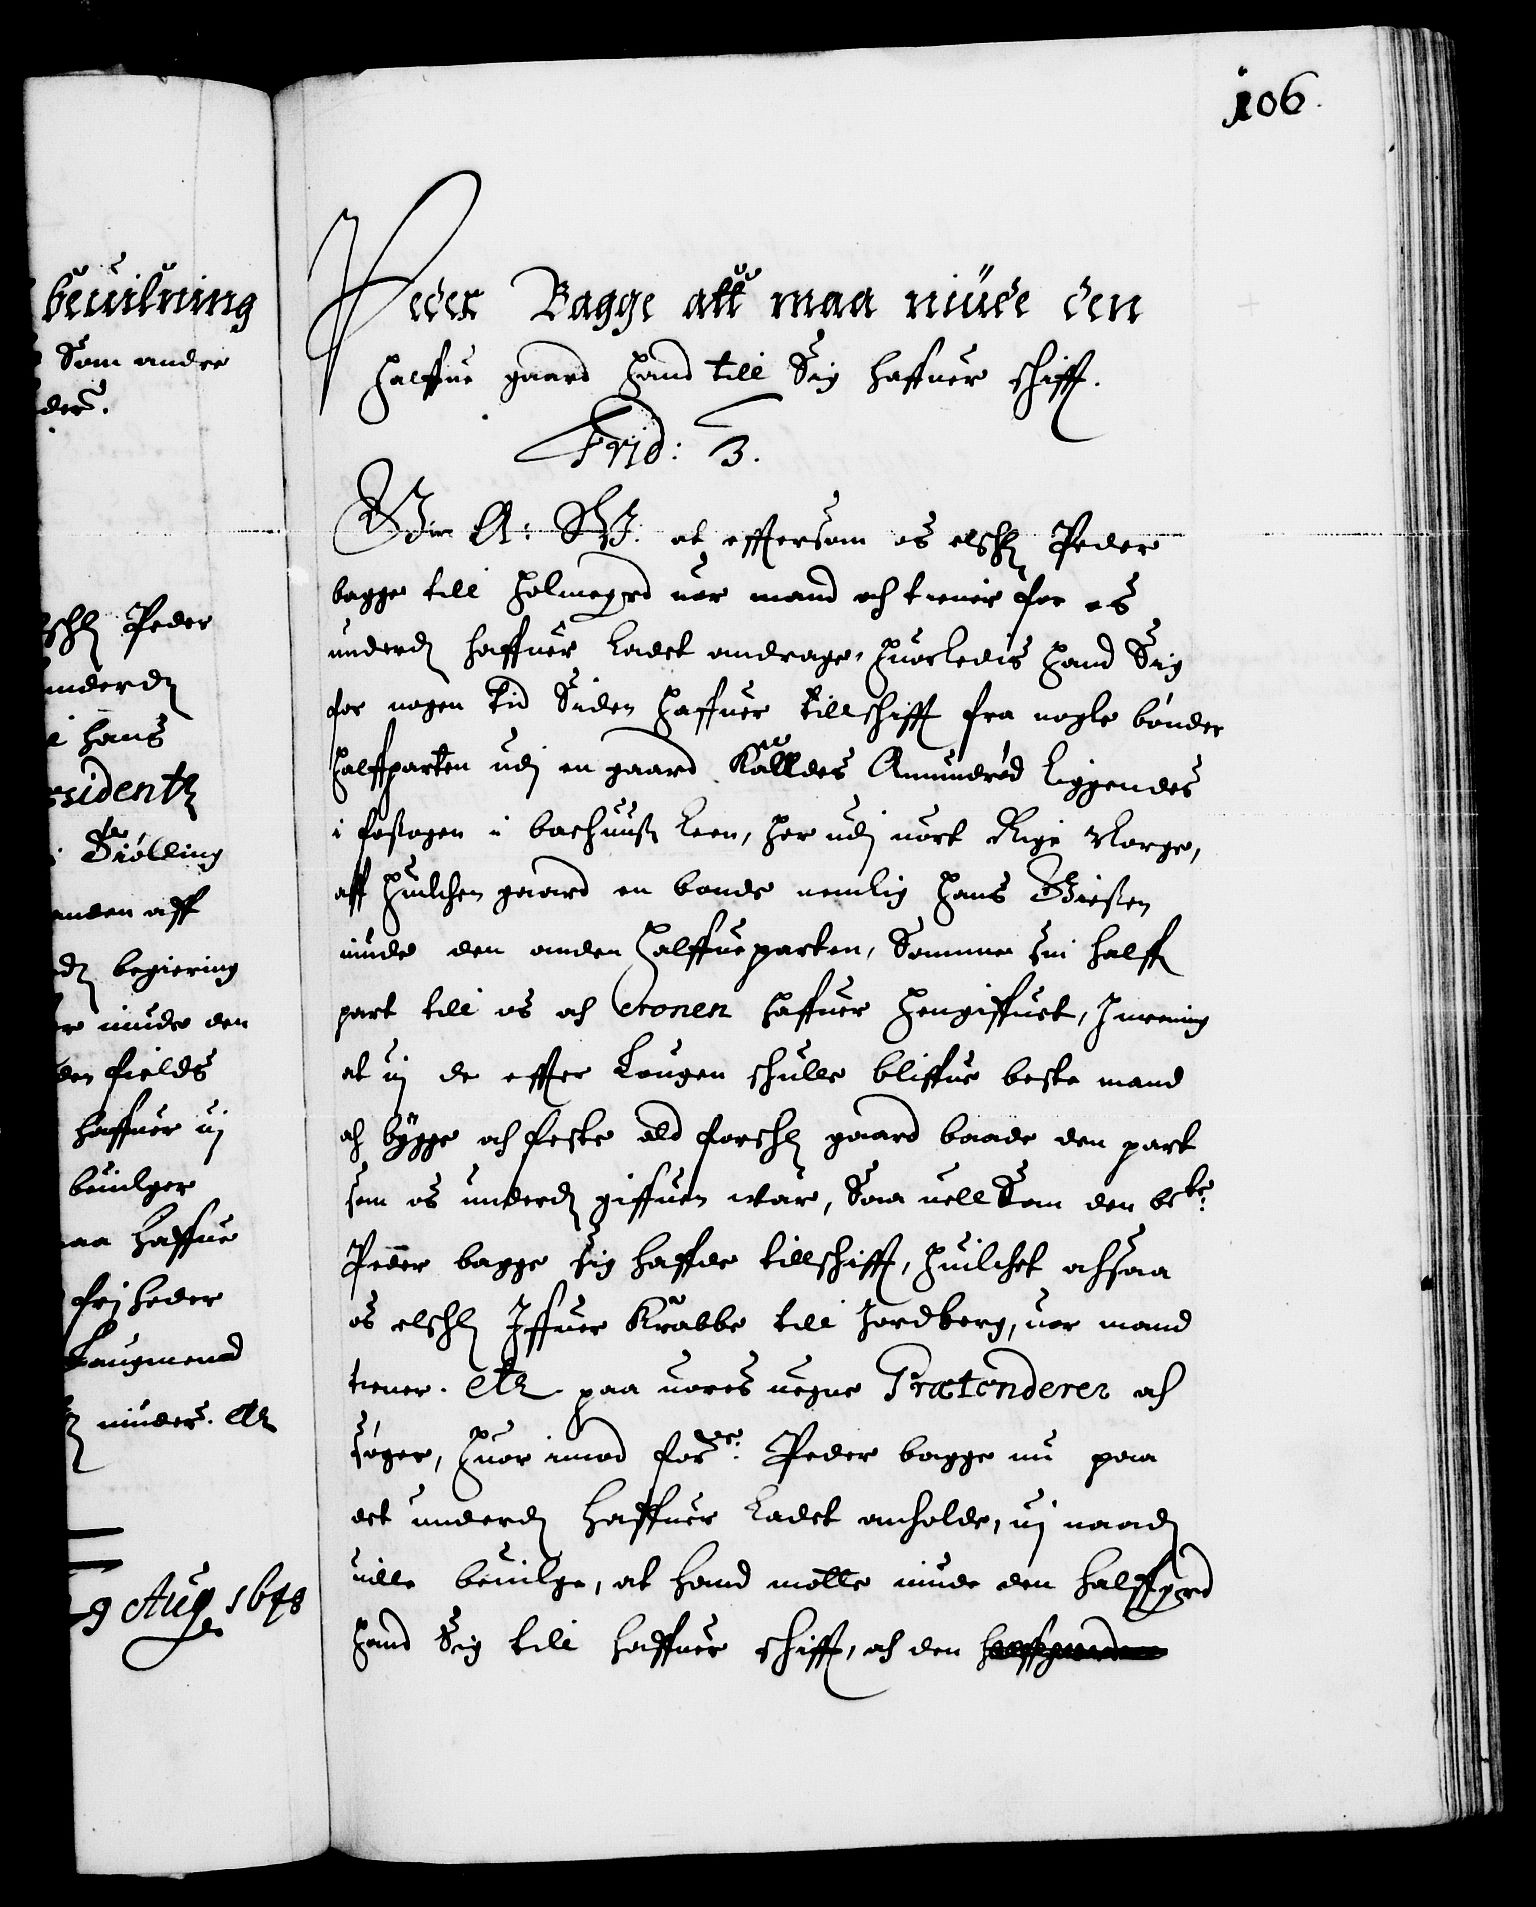 106.
bewilning
Som andre
ders.
schl Peder
underd
i Hans
sidentz
Siölling
anden aff
begiering
er niude den
den fields
haffuer vi
beuilger
maa haffue
friheder
Laugmend
niuder. etc
9 Aug 1648
Peder Bagge att maa niude den
halffue gaard hand till Sig haffuer schifft.
Frid: 3.
Wii A: G: W. at effersom os elschl Peder
bagge till Holmegrd uor mand och tiener for os
underd haffuer Ladet andrage, huorledis hand Sig
for nogen tid Siden haffuer tillschifft fra nogle bønder
halffparten udj en gaard Kalldes Amundrød Liggendes
i foßogen i bachuuß Leen, her udj uort Rige Norge,
aff huilchen gaard en bonde nemlig Hans
niude den anden halffueparten, Somme sin halff
part till os och Cronen haffuer hengiffuet, J meening
at vj de effter Lougen schulle bliffue beste mand
och bygge och feste ald forschl gaard baade den part
som os underd giffuen war, Saa uell Som den bete:
Peder bagge sig haffde tillschifft, huilchet ochsaa
os elschl Jffuer Krabbe till Jordberg, uor mand
tiener. etc paa uores uegne Prætenderer och
søger, huor imod forne: Peder bagge nu paa
det underd haffuer Ladet anholde, vj naad
uille beuilge, at hand motte niude den halffgrd
hand Sig till haffuer schifft, och den